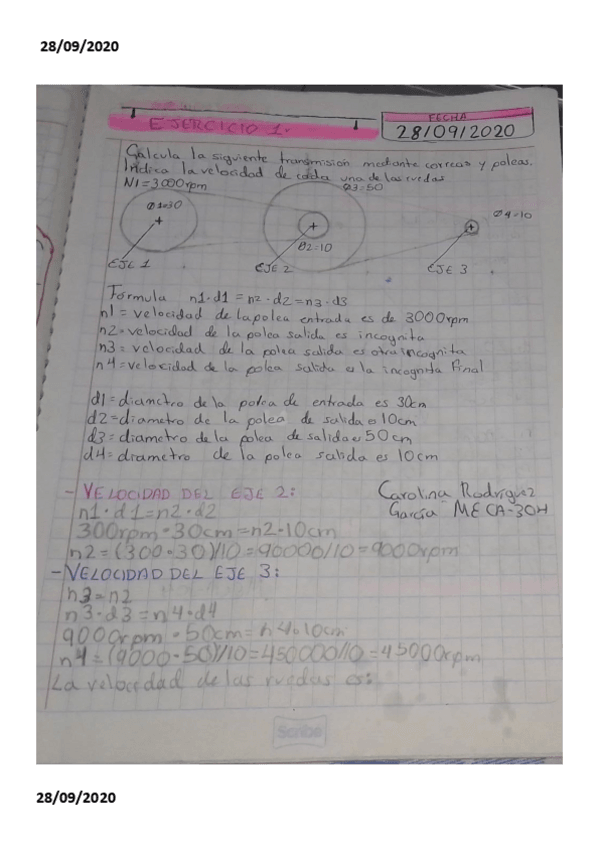 28/09/2020
EJERCICIO 1.
FECHA
28/09/2020
Calcula la siguiente transmision mediante correas y poleas.
Indica la velocidad de cada una de las ruedas
N1=3000rpm
Ø3=50
Ø1=30
Ø4=10
Ø2=10
EJE 1
EJE 2
EJE 3
Formula n1·d1=n2·d2=n3·d3
n1= velocidad de la polea entrada es de 3000rpm
n2=velocidad de la polea salida es incognita
n3= velocidad de la polea salida es otra incognita
n4=velocidad de la polea salida o la incognita Final
d1=diametro de la polea de entrada es 30cm
d2=diametro de la polea de salida o 10cm
d3=diametro de la polea de salida es 50cm
d4=diametro de la polea salida es 10cm
- VELOCIDAD DEL EJE 2:
Carolina Rodríguez
García MECA-3OH
n1·d1=n2·d2
300rpm·30cm=n2·10cm
n2=(300·30)/10=90000/10=9000rpm
- VELOCIDAD DEL EJE 3:
n3=n2
n3·d3=n4·d4
9000rpm·50cm=n4·10cm
n4=(9000·50)/10=450000/10=45000rpm
La velocidad de las ruedas es:
Scribe
28/09/2020